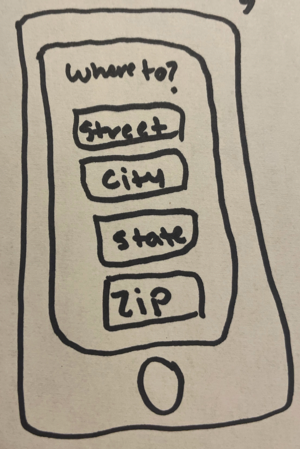 Where to?
Street
City
State
Zip